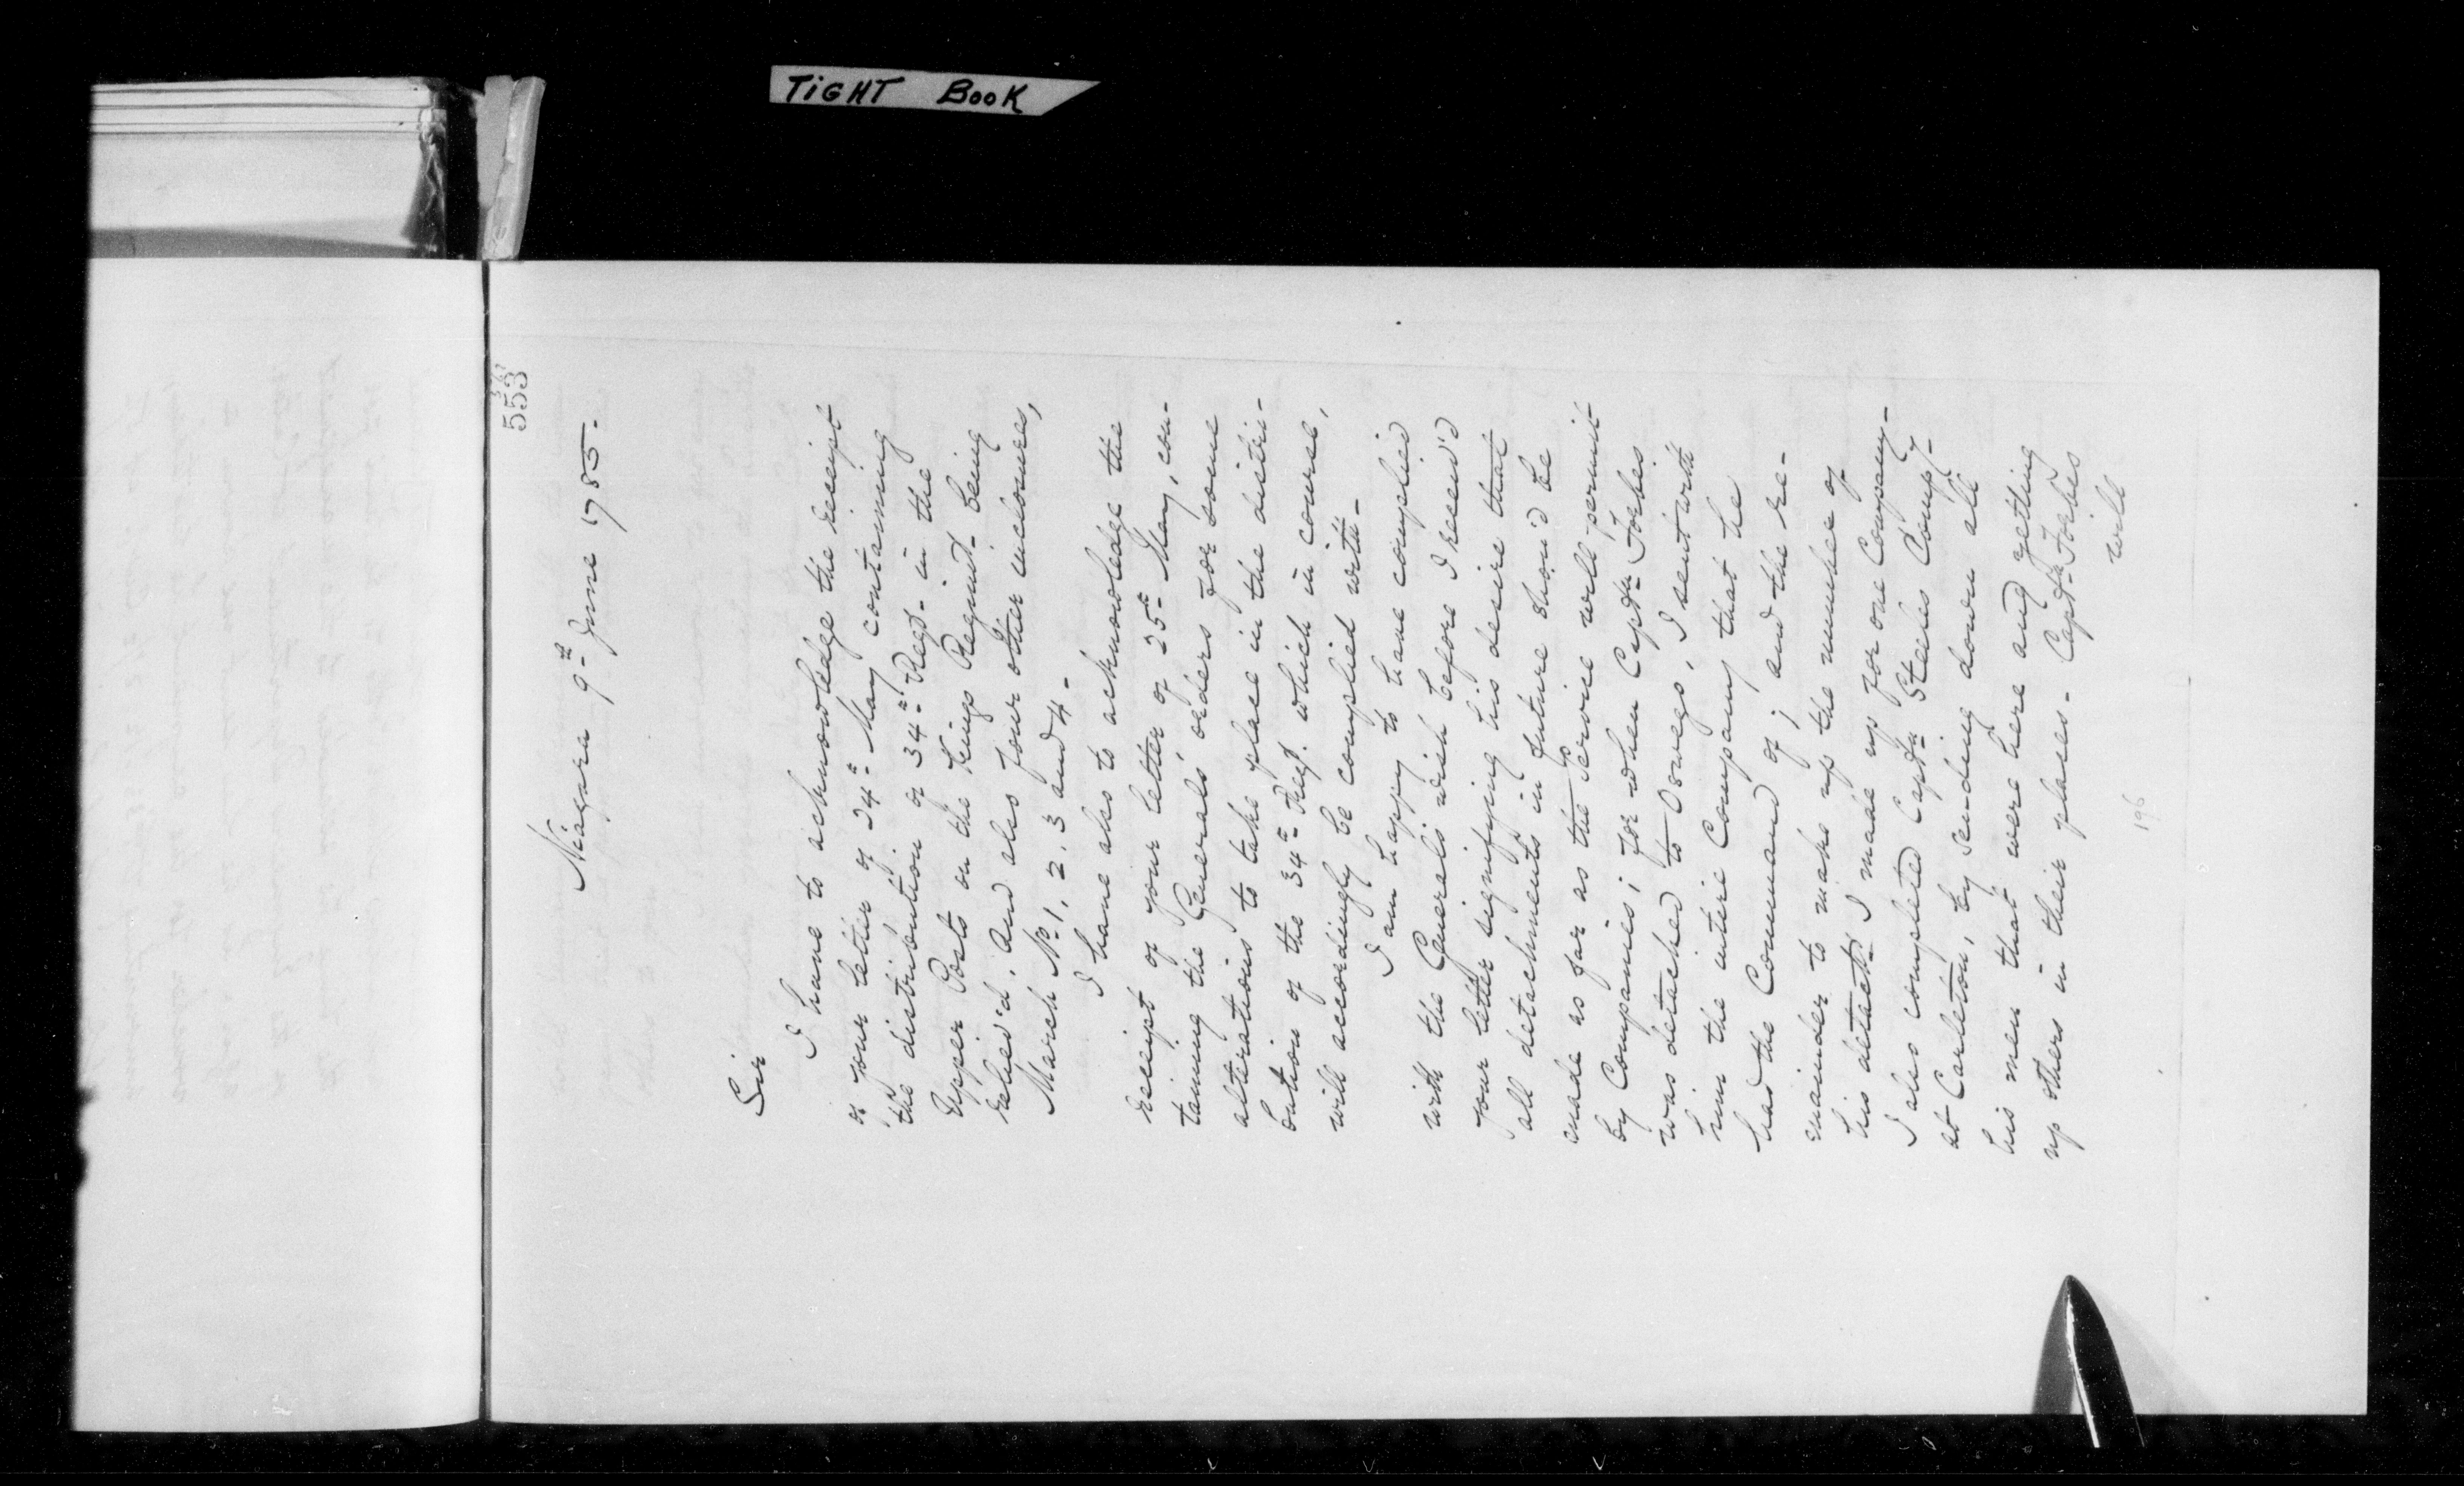 TIGHT BOOK
553
Niagara 9th June 1785.
Sir
I have to acknowledge the receipt
of your letter of 24th May containing
the distribution of 34th Regt. in the
Upper Posts on the Kings Regimt. being
reliev'd. And also four other inclosures,
March No 1, 2, 3 and 4 -
I have also to acknowledge the
receipt of your letter of 25th May, con-
taining the Generals' orders for some
alterations to take place in the distri-
bution of the 34th Regt. which in course,
will accordingly be complied with -
I am happy to have complied
with the Generals wish before I receiv'd
your letter signifying his desire that
all detachments in future shou'd be
made as far as the Service will permit
by Companies; for when Captn Forbes
was detached to Oswego, I sent with
him the entire Company that he
had the Command of; and the re-
mainder to make up the number of
his detacht. I made up for one Company -
I also completed Captn Steeles Compy -
at Carleton, by sending down all
his men that were here and getting
up others in their places - Captn Forbes
will
196